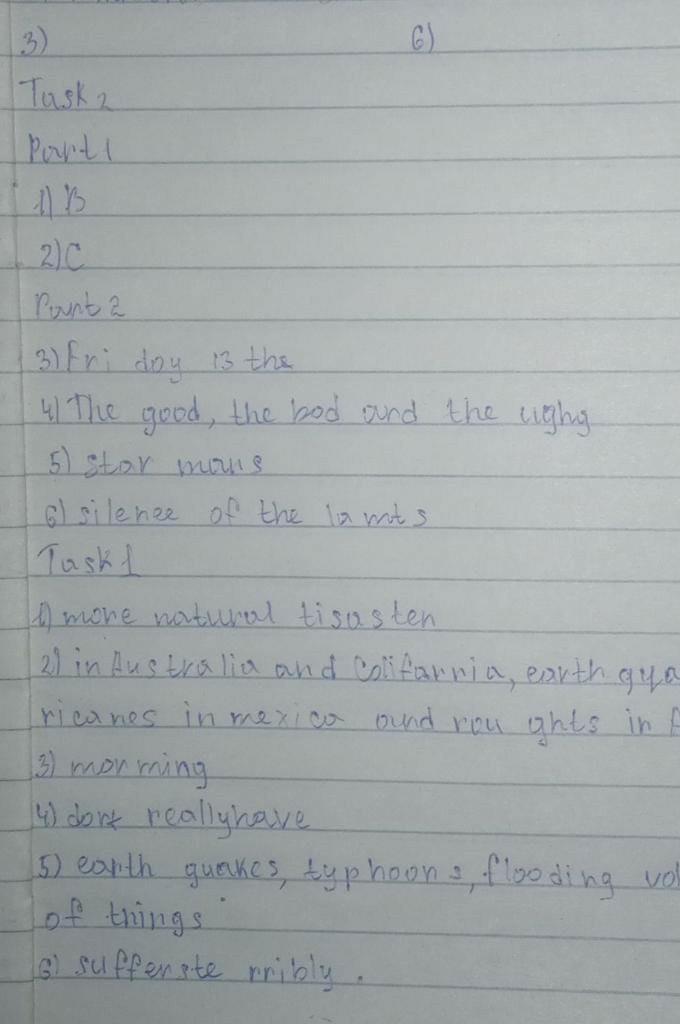 3) 6)
Task 2
Part 1
1) B
2) C
Part 2
3) Fri day 13 the
4) The good, the bad and the ughy
5) star mans
6) silence of the lamts
Task 1
1) more natural tisasten
2) in Australia and Califarnia, earth qua
ricanes in mexico and rou ghts in A
3) morming
4) dont reallyhave
5) earth quakes, typhoons, flooding vol
of things
6) sufferste rribly.